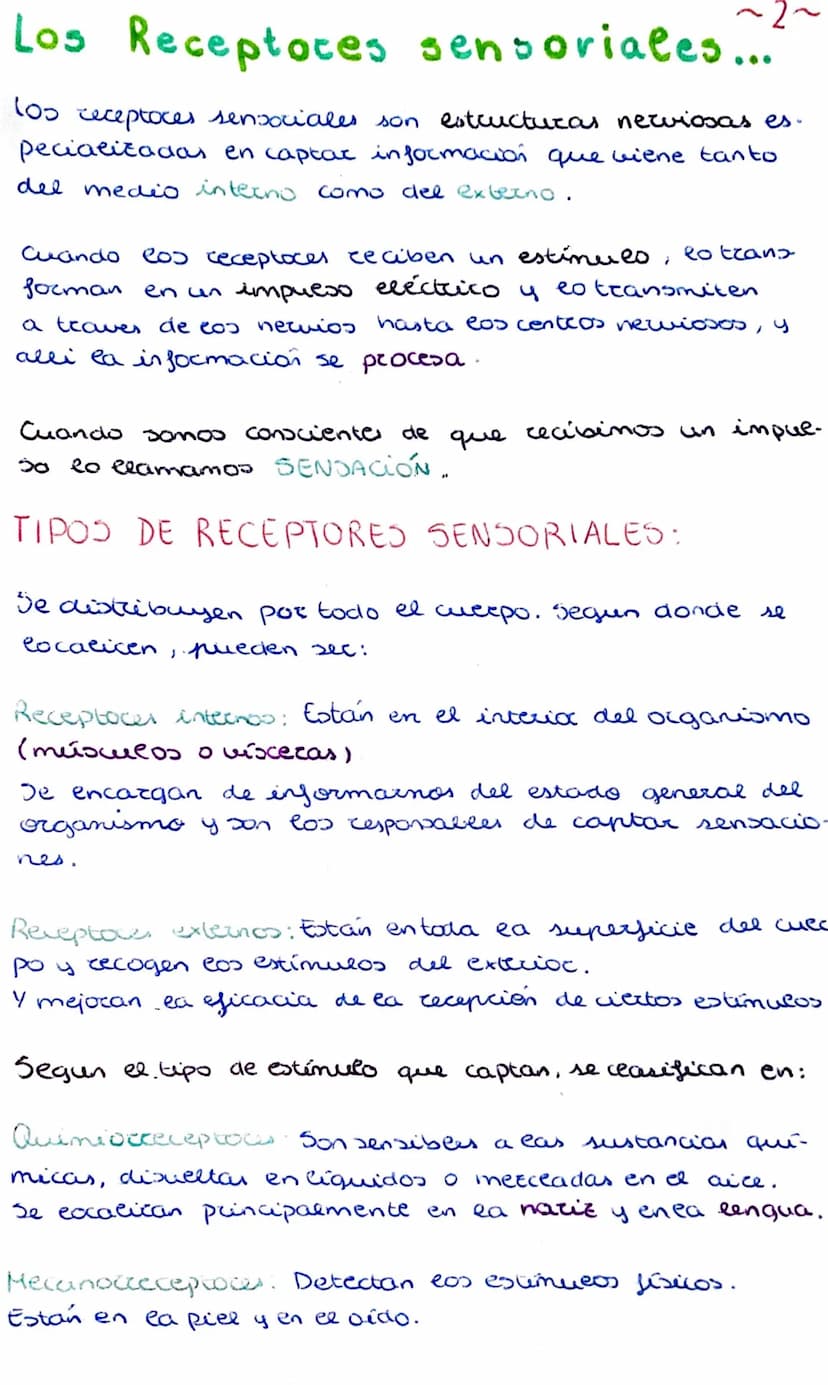 ~2~
Los Receptores sensoriales...
Los receptores sensoriales son estructuras nerviosas es-
pecializadas en captar información que viene tanto
del medio interno como del externo.
Cuando los receptores reciben un estímulo, lo trans-
forman en un impulso eléctrico y lo transmiten
a traves de los nervios hasta los centros nerviosos, y
alli la información se procesa.
Cuando somos conscientes de que recibimos un impul-
so lo llamamos SENSACIÓN.
TIPOS DE RECEPTORES SENSORIALES:
Se distribuyen por todo el cuerpo. Segun donde se
localicen, pueden ser:
Receptores internos: Están en el interior del organismo
(músculos o vísceras)
Se encargan de informarnos del estado general del
organismo y son los responsables de captar sensacio-
nes.
Receptores externos: Están en toda la superficie del cuer
po y recogen los estímulos del exterior.
Y mejoran la eficacia de la recepción de ciertos estímulos
Segun el tipo de estímulo que captan, se clasifican en:
Quimiorreceptores: Son sensibles a las sustancias quí-
micas, disueltas en líquidos o mezcladas en el aire.
Se localizan principalmente en la nariz y en la lengua.
Mecanorreceptores: Detectan los estímulos físicos.
Están en la piel y en el oído.